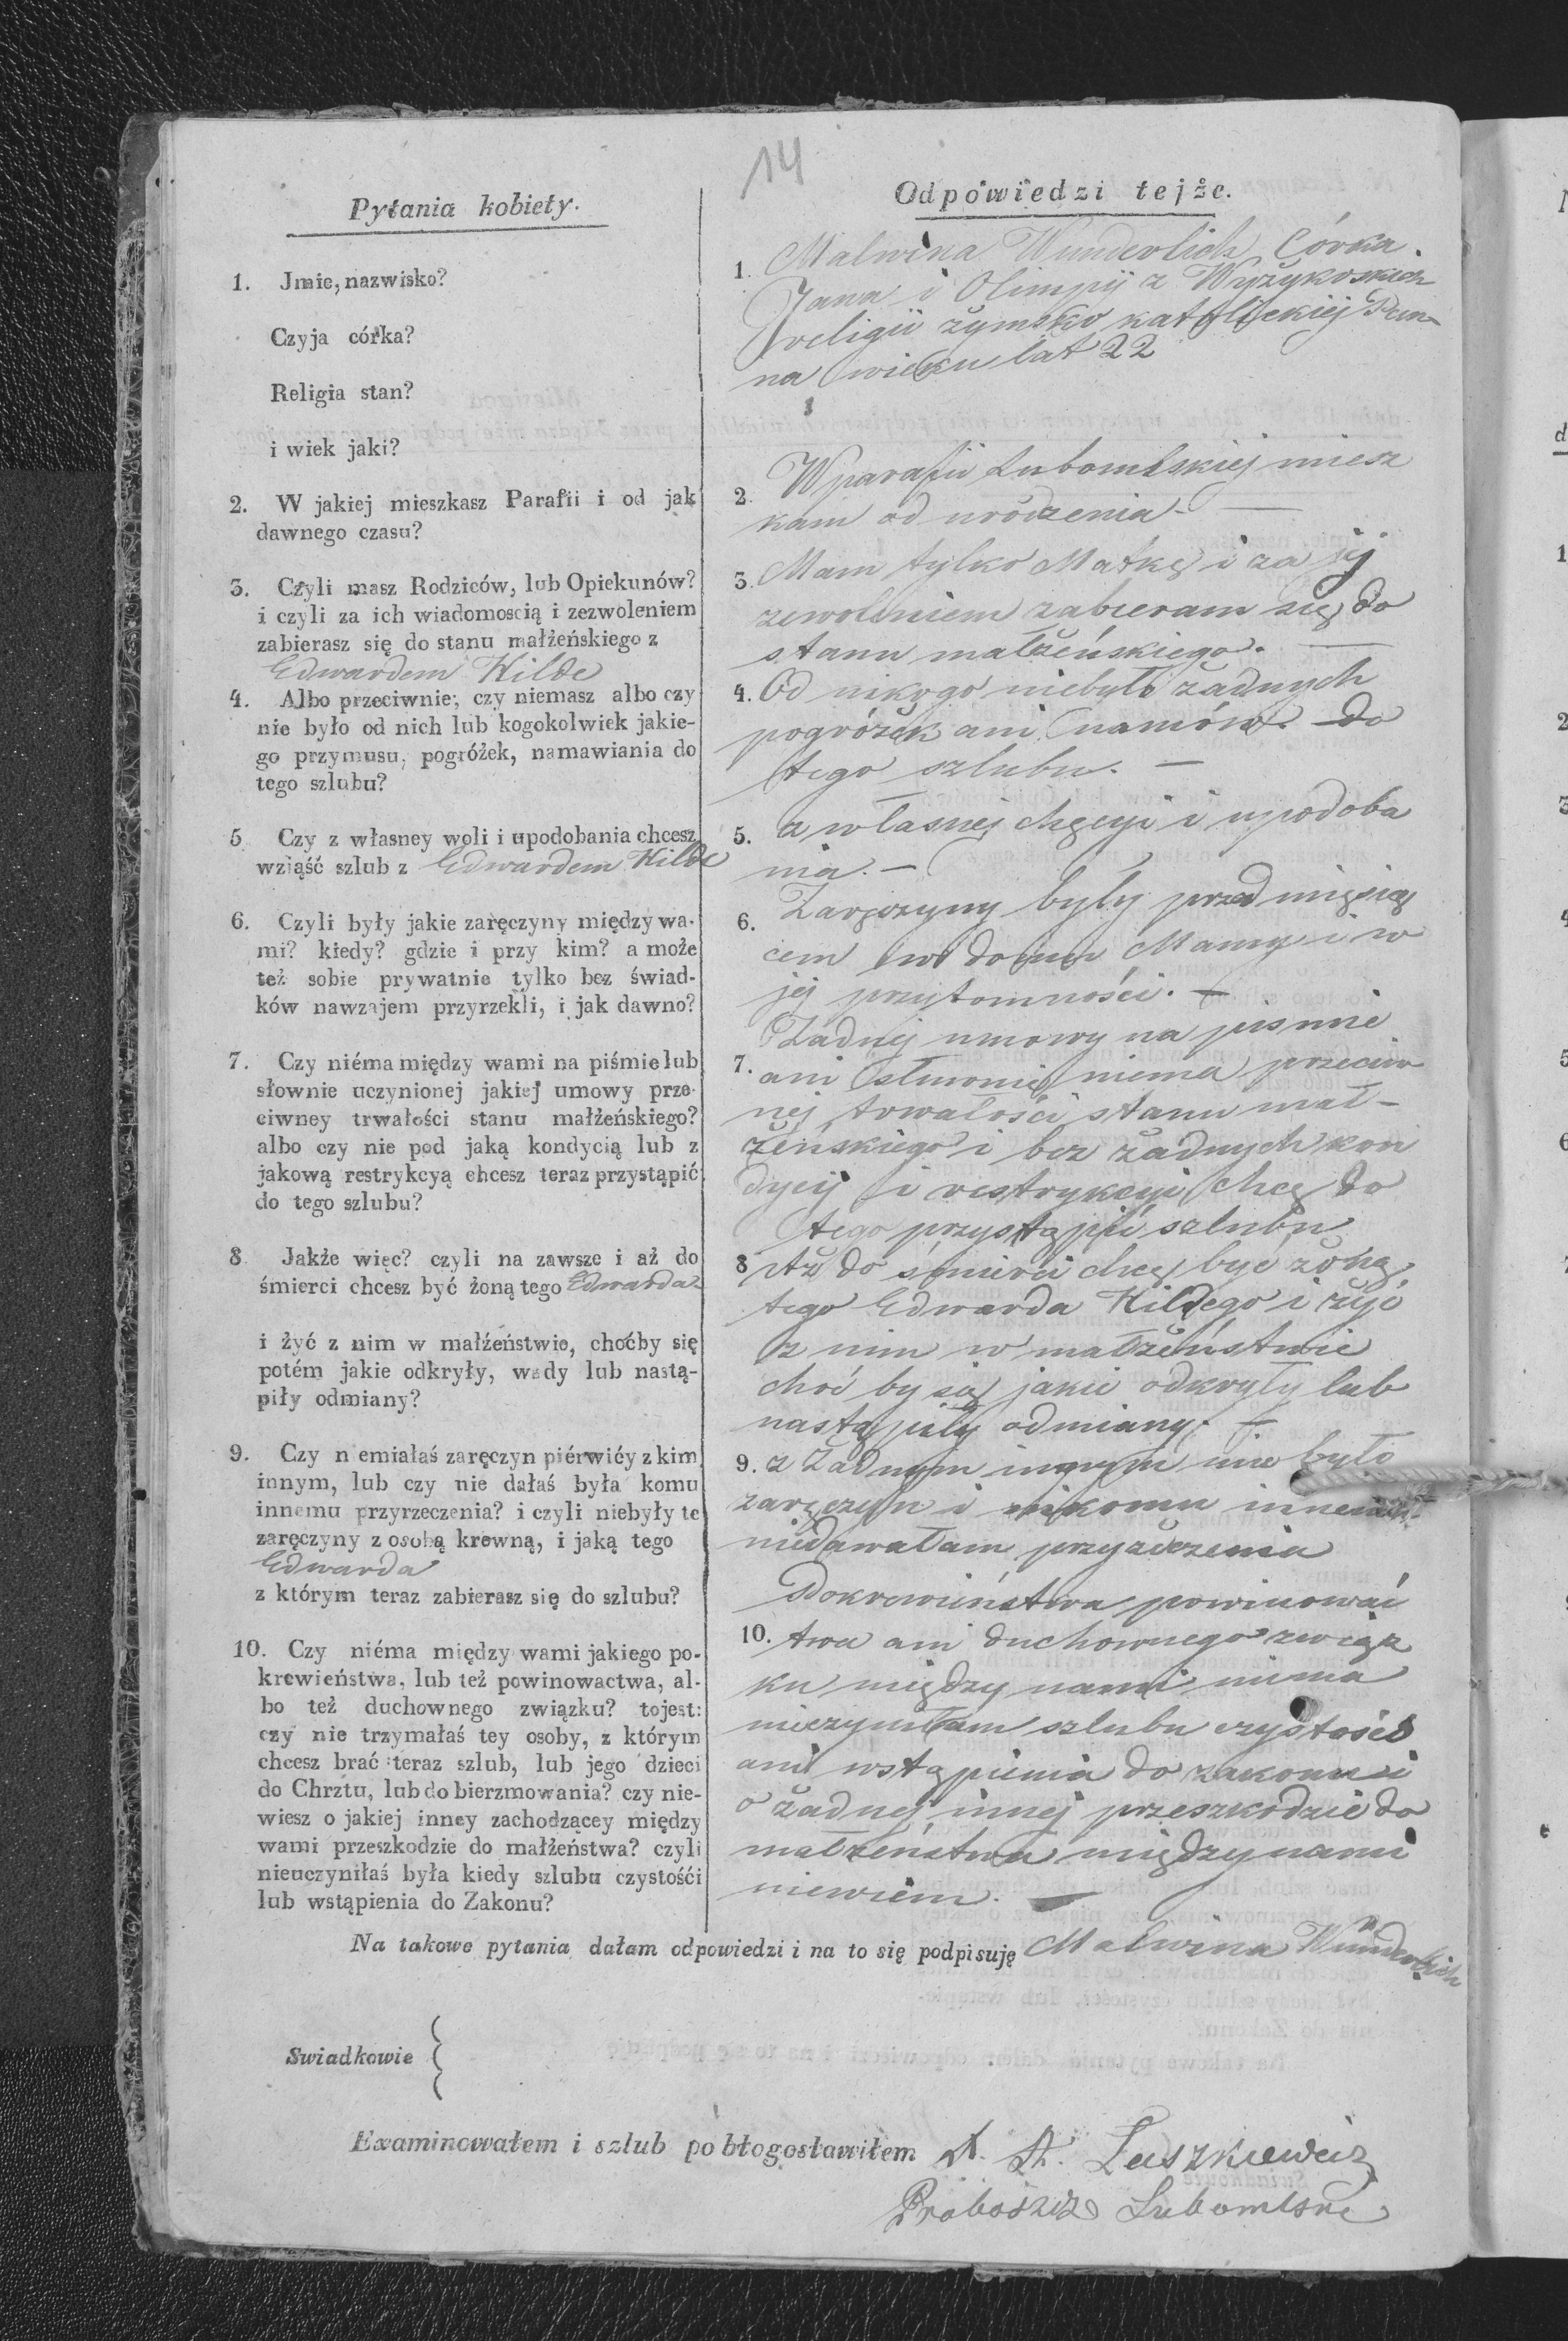 14
Pytania kobiety.
1. Jmie, nazwisko?
Czyja córka?
Religia stan?
i wiek jaki?
2. W jakiej mieszkasz Parafii i od jak
dawnego czasu?
3. Czyli masz Rodziców, lub Opiekunów?
i czyli za ich wiadomoscią i zezwoleniem
zabierasz się do stanu małżeńskiego z
Edwardem Hilde
4. Albo przeciwnie; czy niemasz albo czy
nie było od nich lub kogokolwiek jakie-
go przymusu, pogróżek, namawiania do
tego szlubu?
5 Czy z własney woli i upodobania chcesz
wziąść szlub z Edwardem Hilde
6. Czyli były jakie zaręczyny między wa-
mi? kiedy? gdzie i przy kim? a może
też sobie prywatnie tylko bez świad-
ków nawzajem przyrzekli, i jak dawno?
7. Czy niéma między wami na piśmie lub
słownie uczynionej jakiej umowy prze-
ciwney trwałości stanu małżeńskiego?
albo czy nie pod jaką kondycią lub z
jakową restrykcyą chcesz teraz przystąpić
do tego szlubu?
8 Jakże więc? czyli na zawsze i aż do
śmierci chcesz być żoną tego Edwarda
i żyć z nim w małżeństwie, choćby się
potém jakie odkryły, wady lub nastą-
piły odmiany?
9. Czy n emiałaś zaręczyn piérwićy z kim
innym, lub czy nie dałaś była komu
innemu przyrzeczenia? i czyli niebyły te
zaręczyny z osobą krewną, i jaką tego
Edwarda
z którym teraz zabierasz się do szlubu?
10. Czy niéma między wami jakiego po-
krewieństwa, lub też powinowactwa, al-
bo też duchownego związku? tojest:
czy nie trzymałaś tey osoby, z którym
chcesz brać teraz szlub, lub jego dzieci
do Chrztu, lub do bierzmowania? czy nie-
wiesz o jakiej inney zachodzącey między
wami przeszkodzie do małżeństwa? czyli
nieuczyniłaś była kiedy szlubu czystośći
lub wstąpienia do Zakonu?
Odpowiedzi tejże.
1. Malwina Wunderlich Córka
Jana i Olimpij z Wyżykoskich
religii rzymsko katolickiej Pan-
na wieku lat 22
2. W parafii Lubomlskiej miesz
kam od urodzenia. —
3. Mam tylko Matkę i za jej
zewoleniem zabieram się do
stanu małżeńskiego. —
4. Od nikogo niebyło żadnych
pogróżek ani namów do
tego szlubu. —
5. z własnej chęcyi i upodoba
nia. —
6. Zaręczyny były przed miesią
cem w domu Mamy i w
jej przytomności. —
7. Żadnej umowy na pismie
ani słownie niema przeciw
nej trwałości stanu mał-
żeńskiego i bez żadnych kon
dycij i restrykcyi chcę do
tego przystąpić szlubu
8 Aż do śmierci chcę być żoną
tego Edwarda Hildego i żyć
z nim w małżeństwie
choć by się jakie odkryły lub
nastąpiły odmiany. —
9. z Żadnym innym nie było
zaręczyn i nikomu innemu
niedawałam przyrzeczenia
10. Pokrewieństwa powinowac
twa ani duchownego związ
ku między nami niema
nieczyniłam szlubu czystości
ani wstąpienia do zakonu i
o żadnej innej przeszkodzie do
małżeństwa między nami
niewiem. —
Na takowe pytania dałam odpowiedzi i na to się podpisuję Malwina Wunderlich
Swiadkowie
Examinowałem i szlub pobłogosławiłem X. A. Łuszkiewicz
Proboszcz Lubomlski